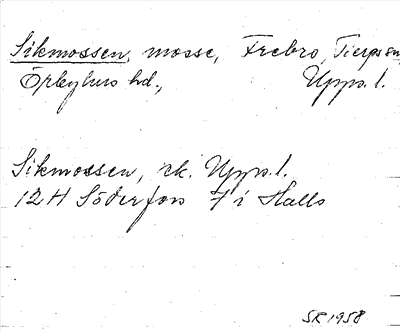 Sikmossen, mosse, Frebro, Tierps sn
Örbyhus hd., Upps. l.
Sikmossen, ek. Upps. l.
12 H Söderfors 7 i Halls
SR 1958